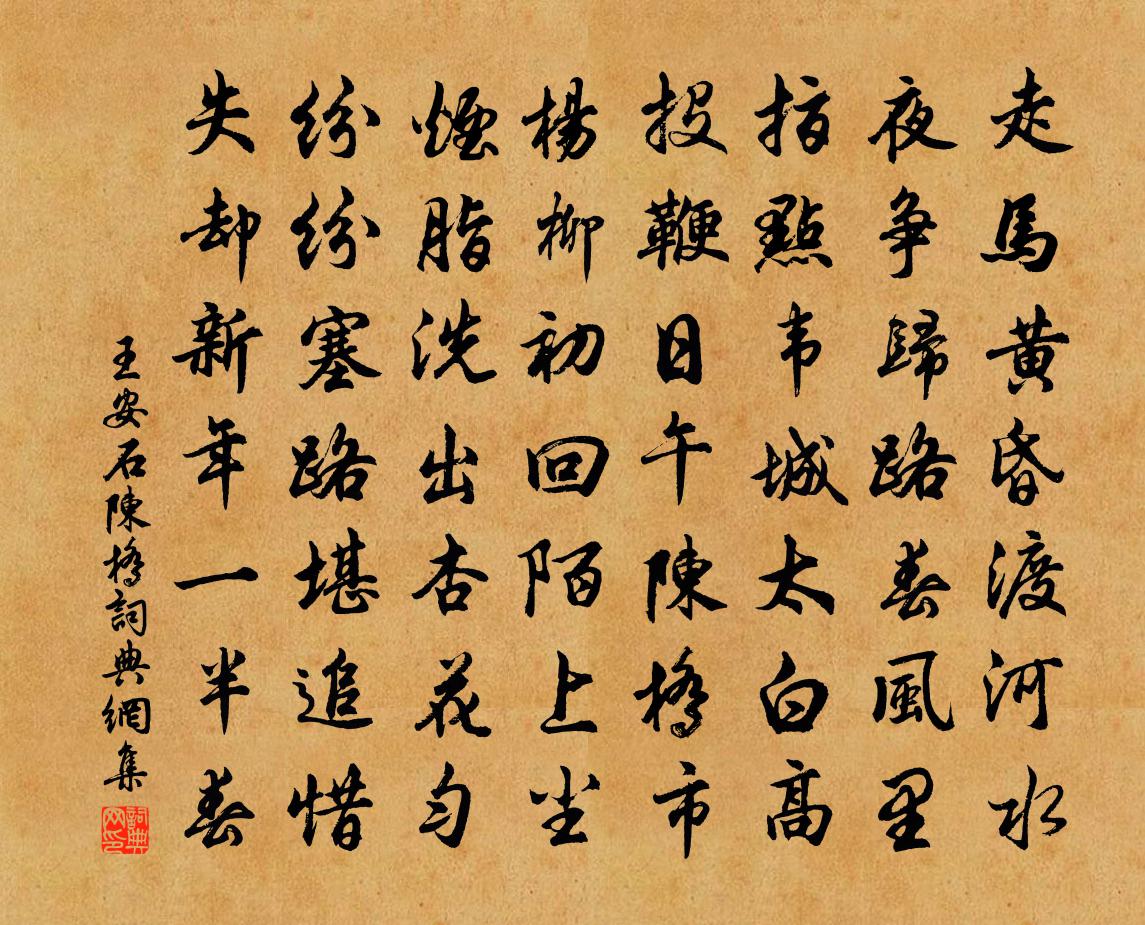 走馬黃昏渡河水
夜爭歸路春風里
指點韦城太白高
投鞭日午陳橋市
楊柳初回陌上尘
煙脂洗出杏花匀
紛紛塞路堪追惜
失却新年一半春
王安石陳橋詞典網集
詞典网印